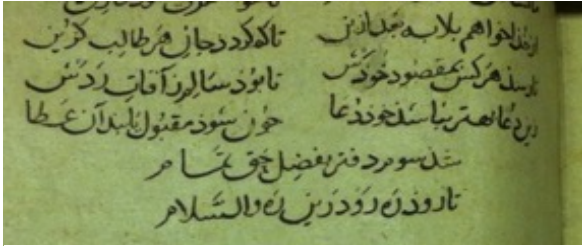 از خذا خواهم بلابه بعد ازین تا که گردد جان هر طالب گزین
تا رسذ هر کس بمقصود خودش تا بوذ سالم ز آفات ردش
زین دعا بهتر نباشذ خود دعا چون شود مقبول یابد آن عطا
شذ سوم دفتر بفضل حق تمام
تا روذ ره رو درین ره والسلام